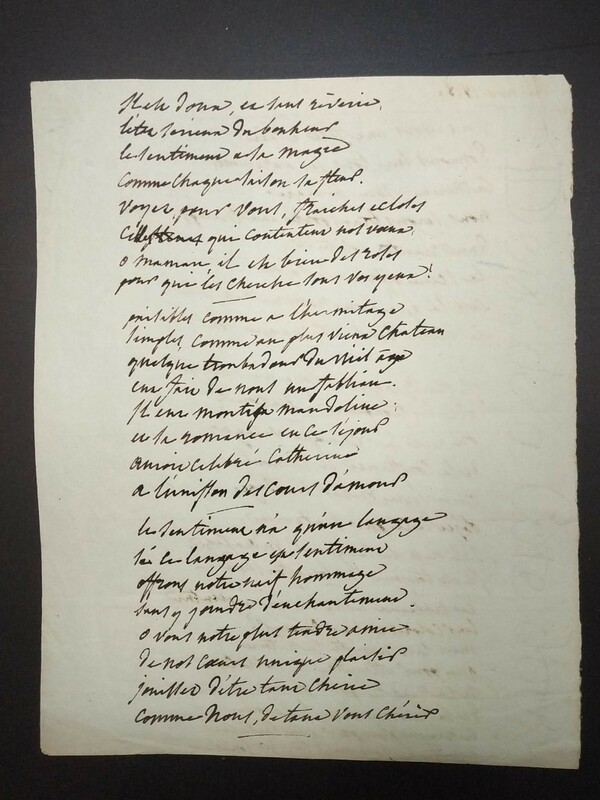 Il est doux, en sant rêverie,
l'être serieux du bonheur
le sentiment a sa magie
comme chaque saison sa fleur.
voyez pour vous, fraiches ecloses
celles qui contentent nos vœux
o maman, il est bien des roses
pour qui les cherche sous vos yeux!
paisibles comme a l'hermitage
simples, comme au plus vieux chateau
quelque troubadour du vieil âge
eut fait de nous un fabliau.
Il eut monté sa mandoline:
et la romance en ce séjour
auroit celebré Catherine
a l'unisson des cours d'amour
le sentiment n'a qu'un langage
et ce langage est sentiment
offrons notre naif hommage
sans y joindre d'enchantement.
o vous notre plus tendre amie
de nos cœurs unique plaisir
jouissez d'être tant cherie
comme nous, de tant vous chérir